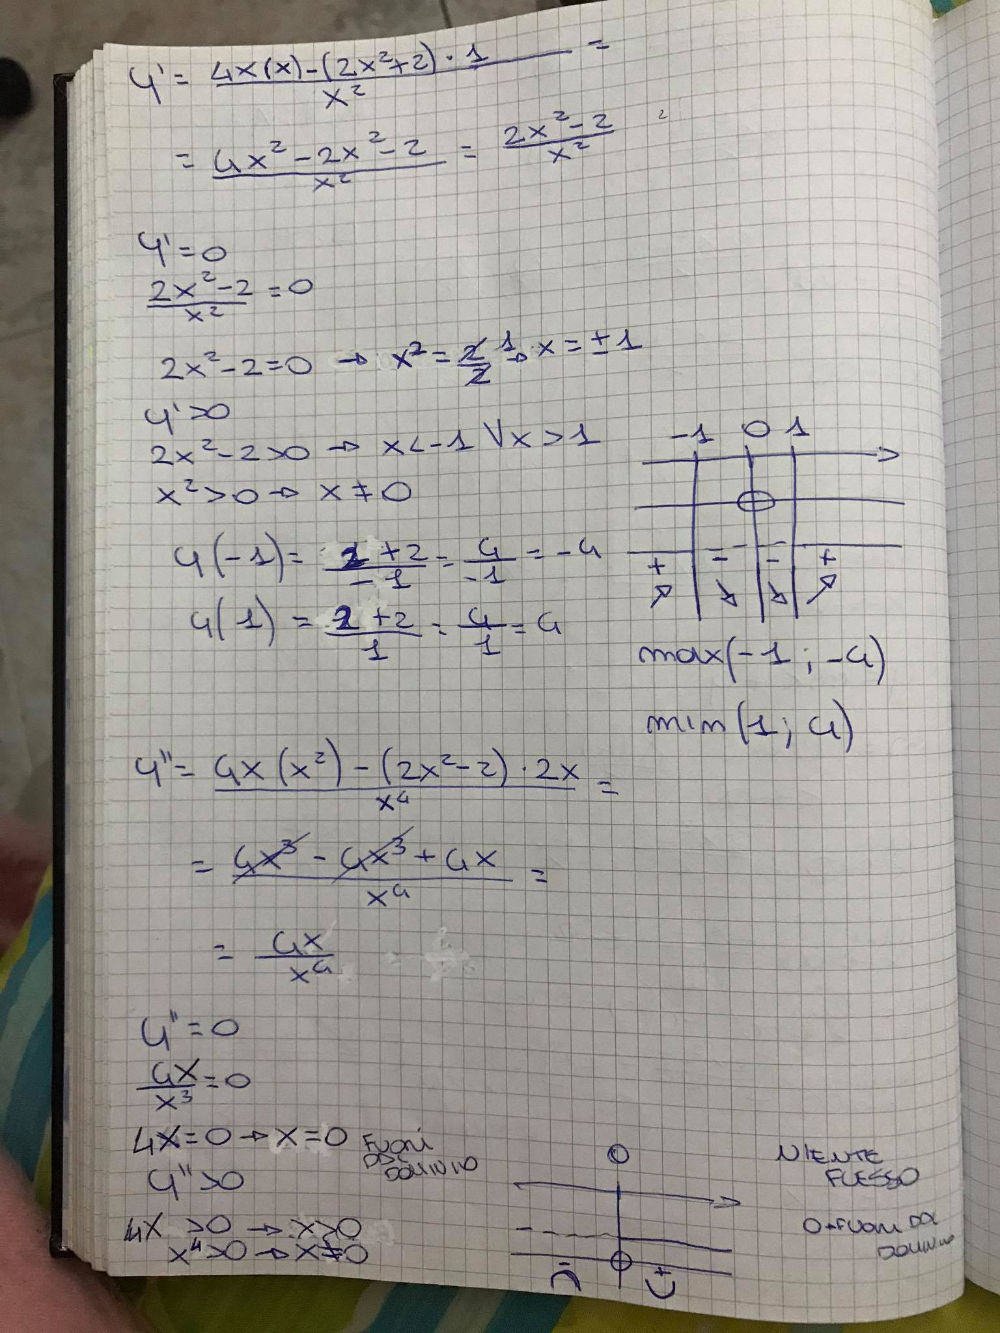 y' = 4x(x) - (2x²+2) · 1 / x² =
= 4x² - 2x² - 2 / x² = 2x² - 2 / x²
y' = 0
2x² - 2 / x² = 0
2x² - 2 = 0 → x² = 2/2 1 → x = ±1
y' > 0
2x² - 2 > 0 → x < -1 ∨ x > 1
x² > 0 → x ≠ 0
-1 0 1
+ - - +
y(-1) = 2+2 / -1 = 4 / -1 = -4
y(1) = 2+2 / 1 = 4 / 1 = 4
max(-1 ; -4)
min(1 ; 4)
y'' = 4x(x²) - (2x²-2) · 2x / x⁴ =
= 4x³ - 4x³ + 4x / x⁴ =
= 4x / x⁴
y'' = 0
4x / x³ = 0
4x = 0 → x = 0 FUORI
DAL
DOMINIO
y'' > 0
4x > 0 → x > 0
x⁴ > 0 → x ≠ 0
0
- +
NIENTE
FLESSO
0 → FUORI DAL
DOMINIO